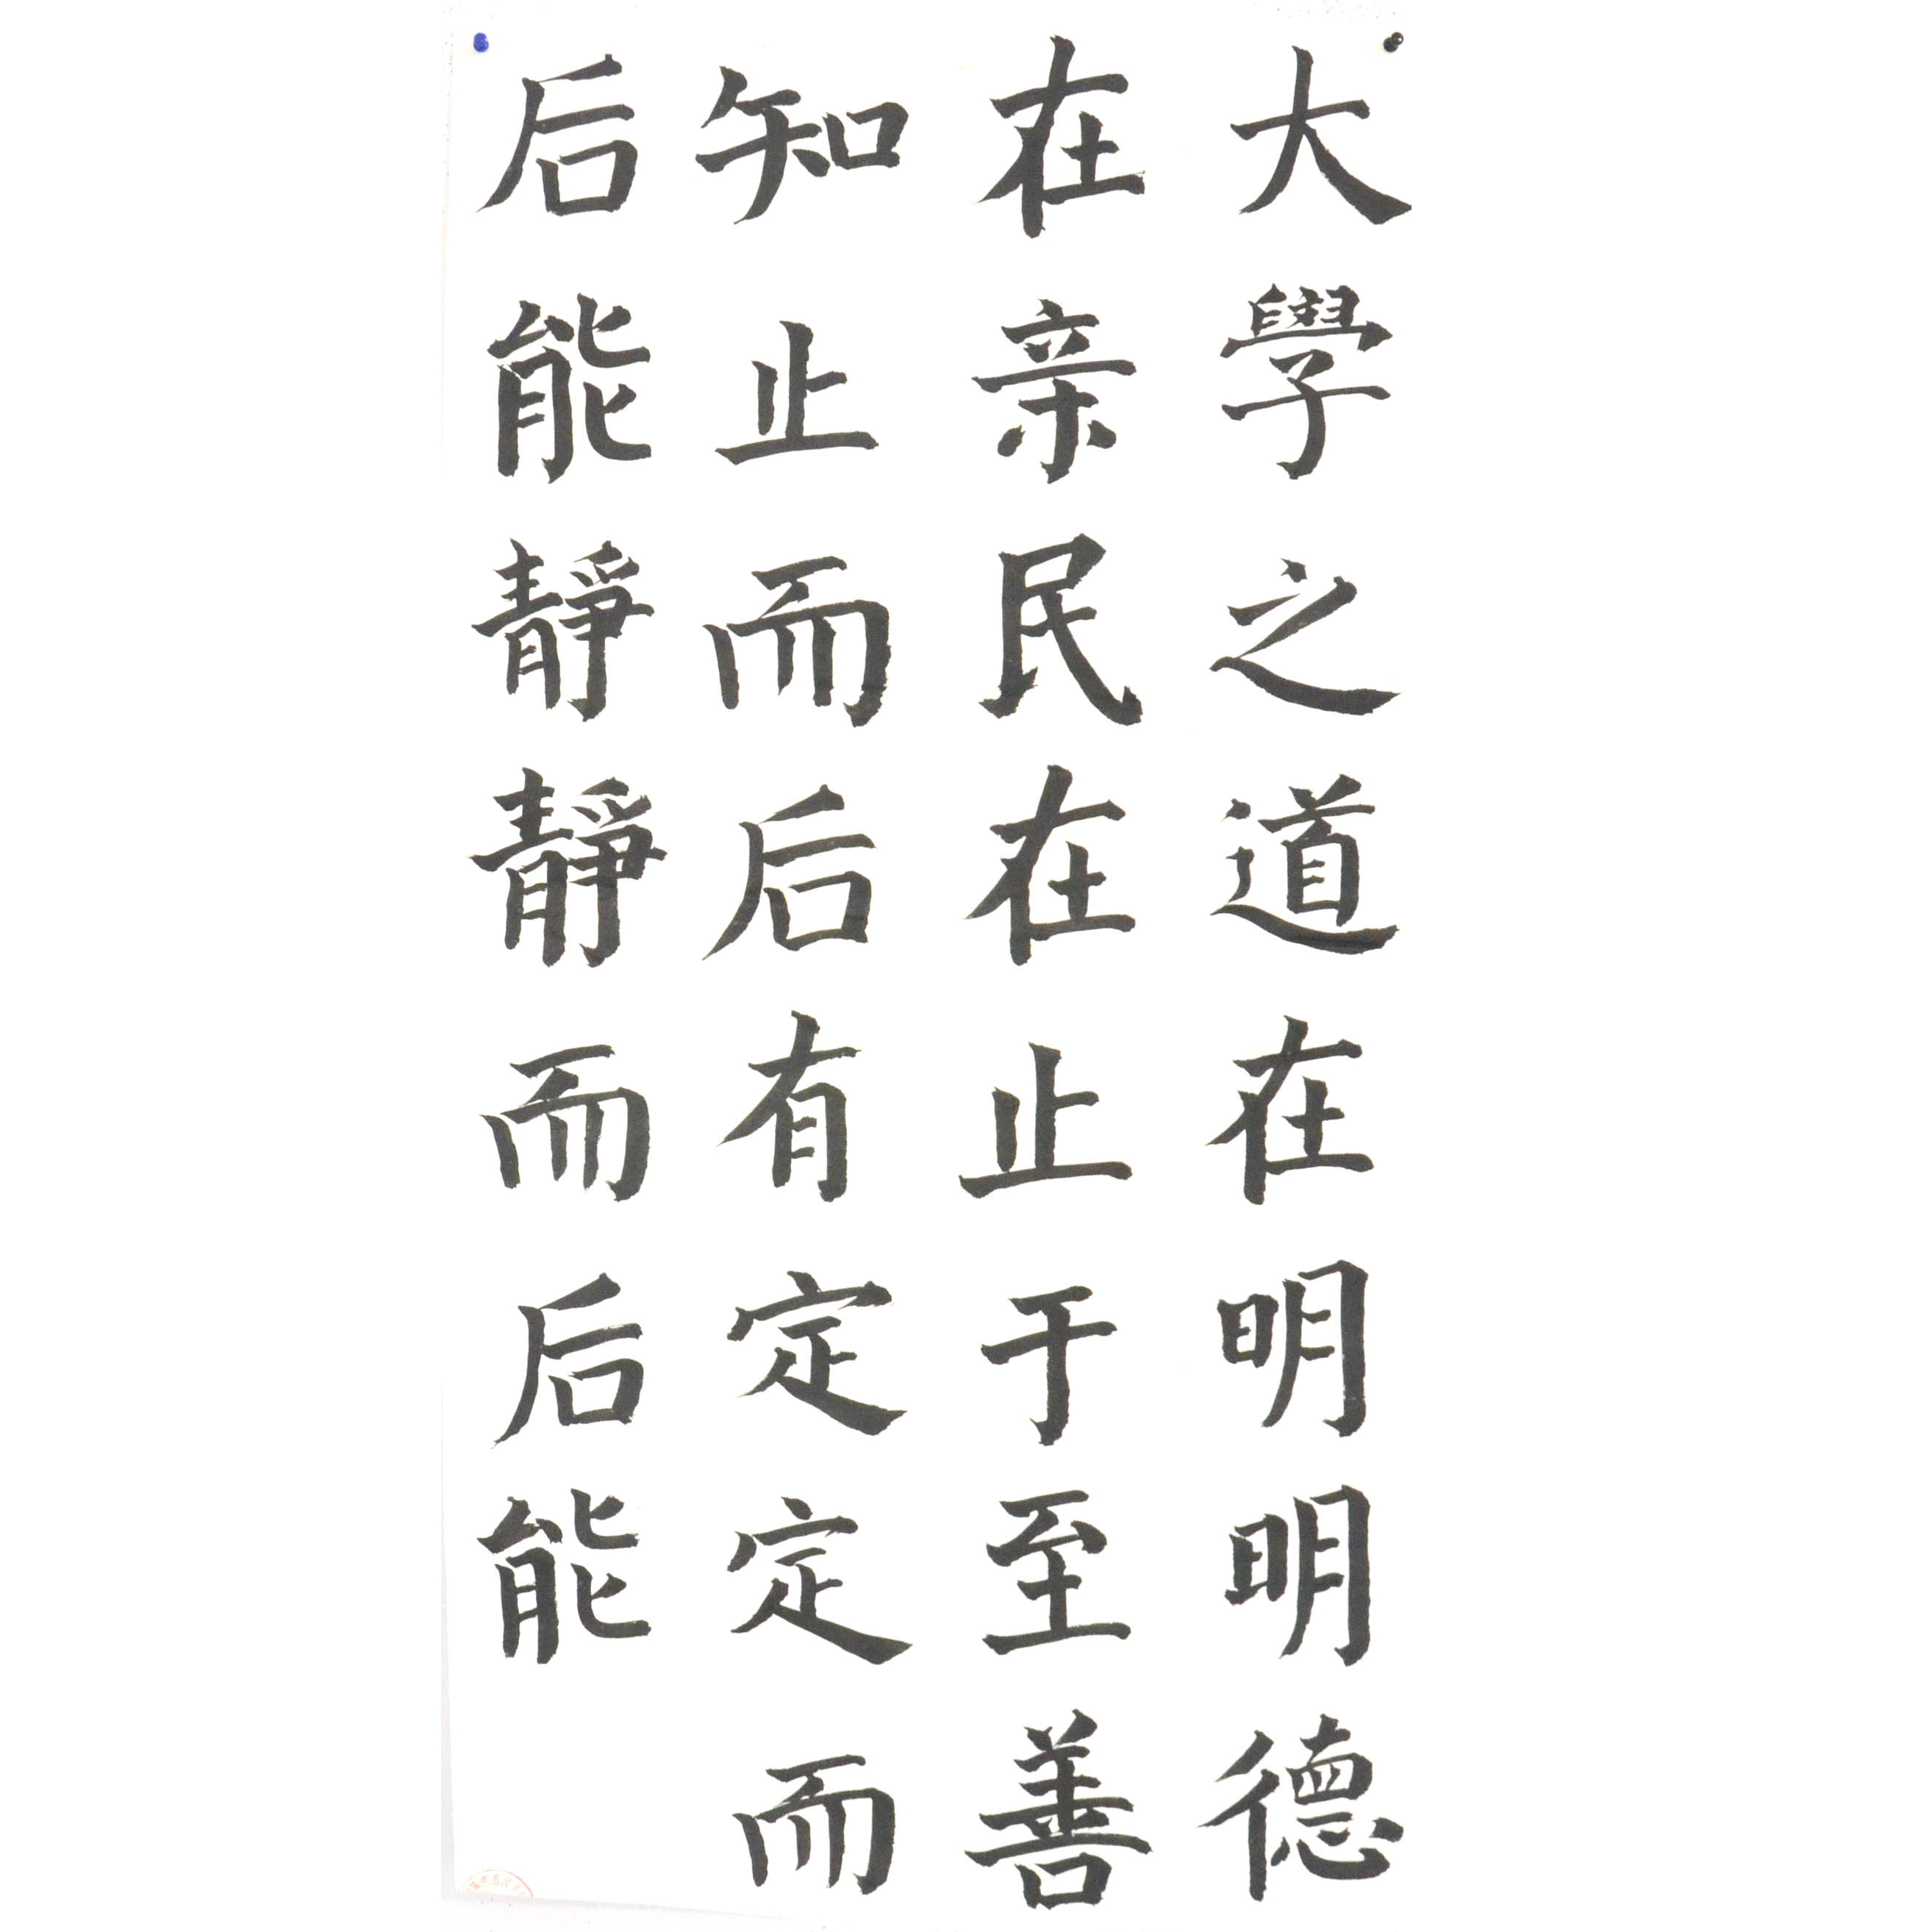 大學之道在明明德
在亲民在止于至善
知止而后有定定而
后能靜靜而后能